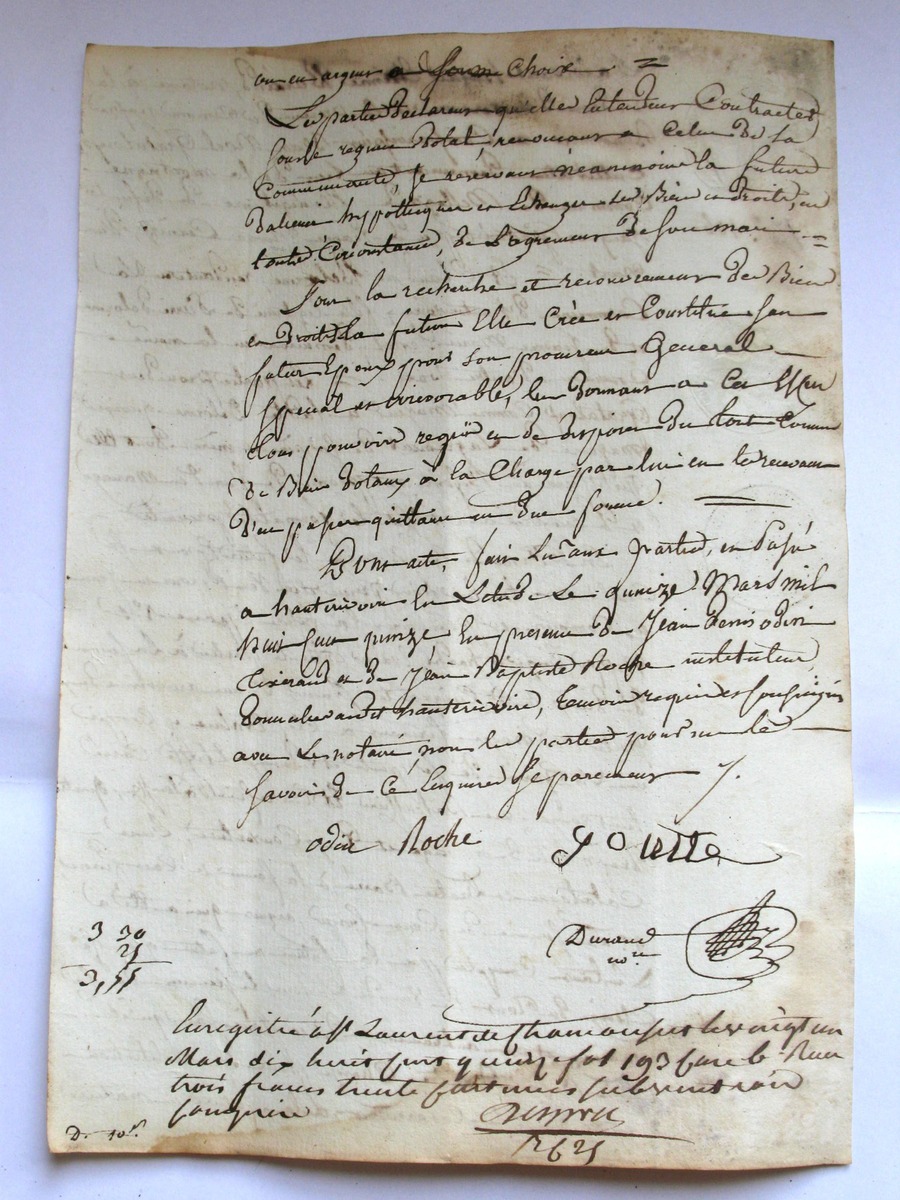 ou en argent a son Choix =
Les parties declarent qu'elles Entendent Contracter
sous le regime Dotal, renoncant a Celui De la
Communauté, se reservant néanmoins la future
D'aliener hypothequer et Echanger ses Biens et Droits, en
toutes Circonstances, De L'agrement De son mari =
Pour la recherche et recouvrement des Biens
et Droits de la future Elle Crée et Constitue son
futur Epoux pour son procureur General
special et irrevocable, lui Donnant a Cet Effet
tous pouvoirs requis et de disposer du tout Comme
De Biens Dotaux à la Charge par lui en le recevant
D'en passer quittance en due forme. =
Dont acte, fait Lu aux parties, et Passé
a hauterivoire En L'etude Le quinze Mars mil
huit cent quinze, En presence De Jean denis odin
tixerand et De Jean Baptiste Roche instituteur,
Domiciliés audit hauterivoire, temoins requis et soussignés
avec Le notaire, non les parties pour ne le
savoir de Ce Enquises separement /.
odin Roche
Durand
nore
3 30
25
3,55
Enregistré à St Laurent de Chamousset le vingt un
Mars dix huit cent quinze fol 193 Case 6. Reçu
trois francs trente centimes subvention
comprise
D. 10e.
2625